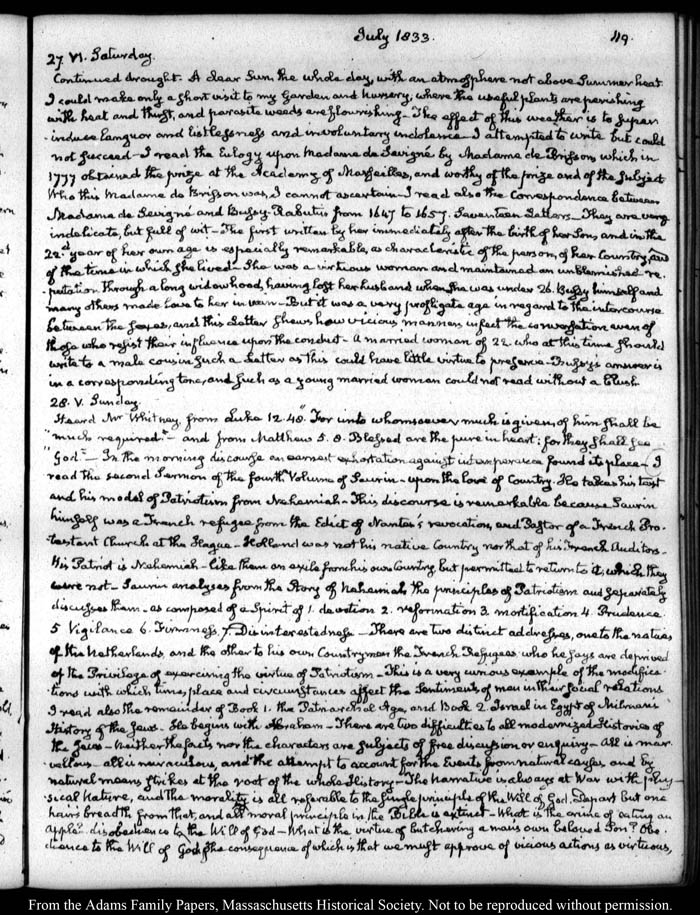 July 1833.
49.
27. VI. Saturday.
Continued drought. A clear Sun, the whole day, with an atmosphere not above Summer heat
I could make only a short visit to my Garden and Nursery, where the useful plants are perishing
with heat and thirst, and parasite weeds are flourishing. The effect of this weather is to superinduce
languor and listlessness and involuntary indolence—I attempted to write but could
not succeed—I read the Eulogy upon Madame de Sevigné by Madame de Brisson, which in
1777 obtained the prize at the Academy of Marseilles, and worthy of the prize and of the subject
Who this Madame de Brisson was, I cannot ascertain—I read also the Correspondence between
Madame de Sevigné and Bussy Rabutin from 1647 to 1657. Seventeen Letters—They are very
indelicate, but full of wit—The first written by her immediately after the birth of her Son, and in the
22.d year of her own age is especially remarkable, as characteristic of the person, of her Country, and
of the time in which she lived—She was a virtuous woman and maintained an unblemished re-
-putation through a long widowhood, having lost her husband when she was under 26. Bussy himself and
many others made love to her in vain—But it was a very profligate age in regard to the intercourse
between the sexes, and this Letter shews how vicious manners infect the conversation even of
those who resist their influence upon the conduct—A married woman of 22 who at this time should
write to a male cousin such a Letter as this could have little virtue to preserve—Bussy's answer is
in a corresponding tone, and such as a young married woman could not read without a blush
28. V. Sunday.
Heard Mr Whitney, from Luke 12. 48. "For unto whomsoever much is given, of him shall be
"much required"—and from Matthew 5. 8. Blessed are the pure in heart: for they shall see
"God"—In the morning discourse an earnest exhortation against intemperance found its place—I
read the second Sermon of the fourth Volume of Saurin—upon the love of Country. He takes his text
and his model of Patriotism from Nehemiah—This discourse is remarkable because Saurin
himself was a French refugee from the Edict of Nantes's revocation, and Pastor of a French Pro-
testant Church at the Hague—Holland was not his native Country nor that of his French Auditors—
His Patriot is Nehemiah—like them an exile from his own Country, but permitted to return to it, which they
were not—Saurin analyses from the Story of Nehemiah the principles of Patriotism and separately
discusses them—as composed of a Spirit of 1. devotion 2. reformation 3. mortification 4. Prudence
5 Vigilance 6. Firmness. 7. Disinterestedness—There are two distinct addresses, one to the natives
of the Netherlands, and the other to his own Countrymen the French Refugees who he says are deprived
of the Privilege of exercising the virtue of Patriotism—This is a very curious example of the modifica-
tions with which time, place and circumstances affect the Sentiments of men in their social relations
I read also the remainder of Book 1. the Patriarchal Age, and Book 2. Israel in Egypt of Milman's
History of the Jews. He begins with Abraham—There are two difficulties to all modernized Histories of
the Jews—Neither the facts nor the characters are subjects of free discussion or enquiry—All is mar-
vellous—all is miraculous, and the attempt to account for the Events from natural causes, and by
natural means strikes at the root of the whole History—The narrative is always at War with phy-
sical Nature, and the morality is all referable to the single principle of the Will of God. Depart but one
hair's breadth from that, and all moral principle in the Bible is extinct—What is the crime of eating an
apple? disobedience to the Will of God—What is the virtue of butchering a man's own beloved Son? Obe-
dience to the Will of God, the consequence of which is that we must approve of vicious actions as virtuous,
From the Adams Family Papers, Massachusetts Historical Society. Not to be reproduced without permission.